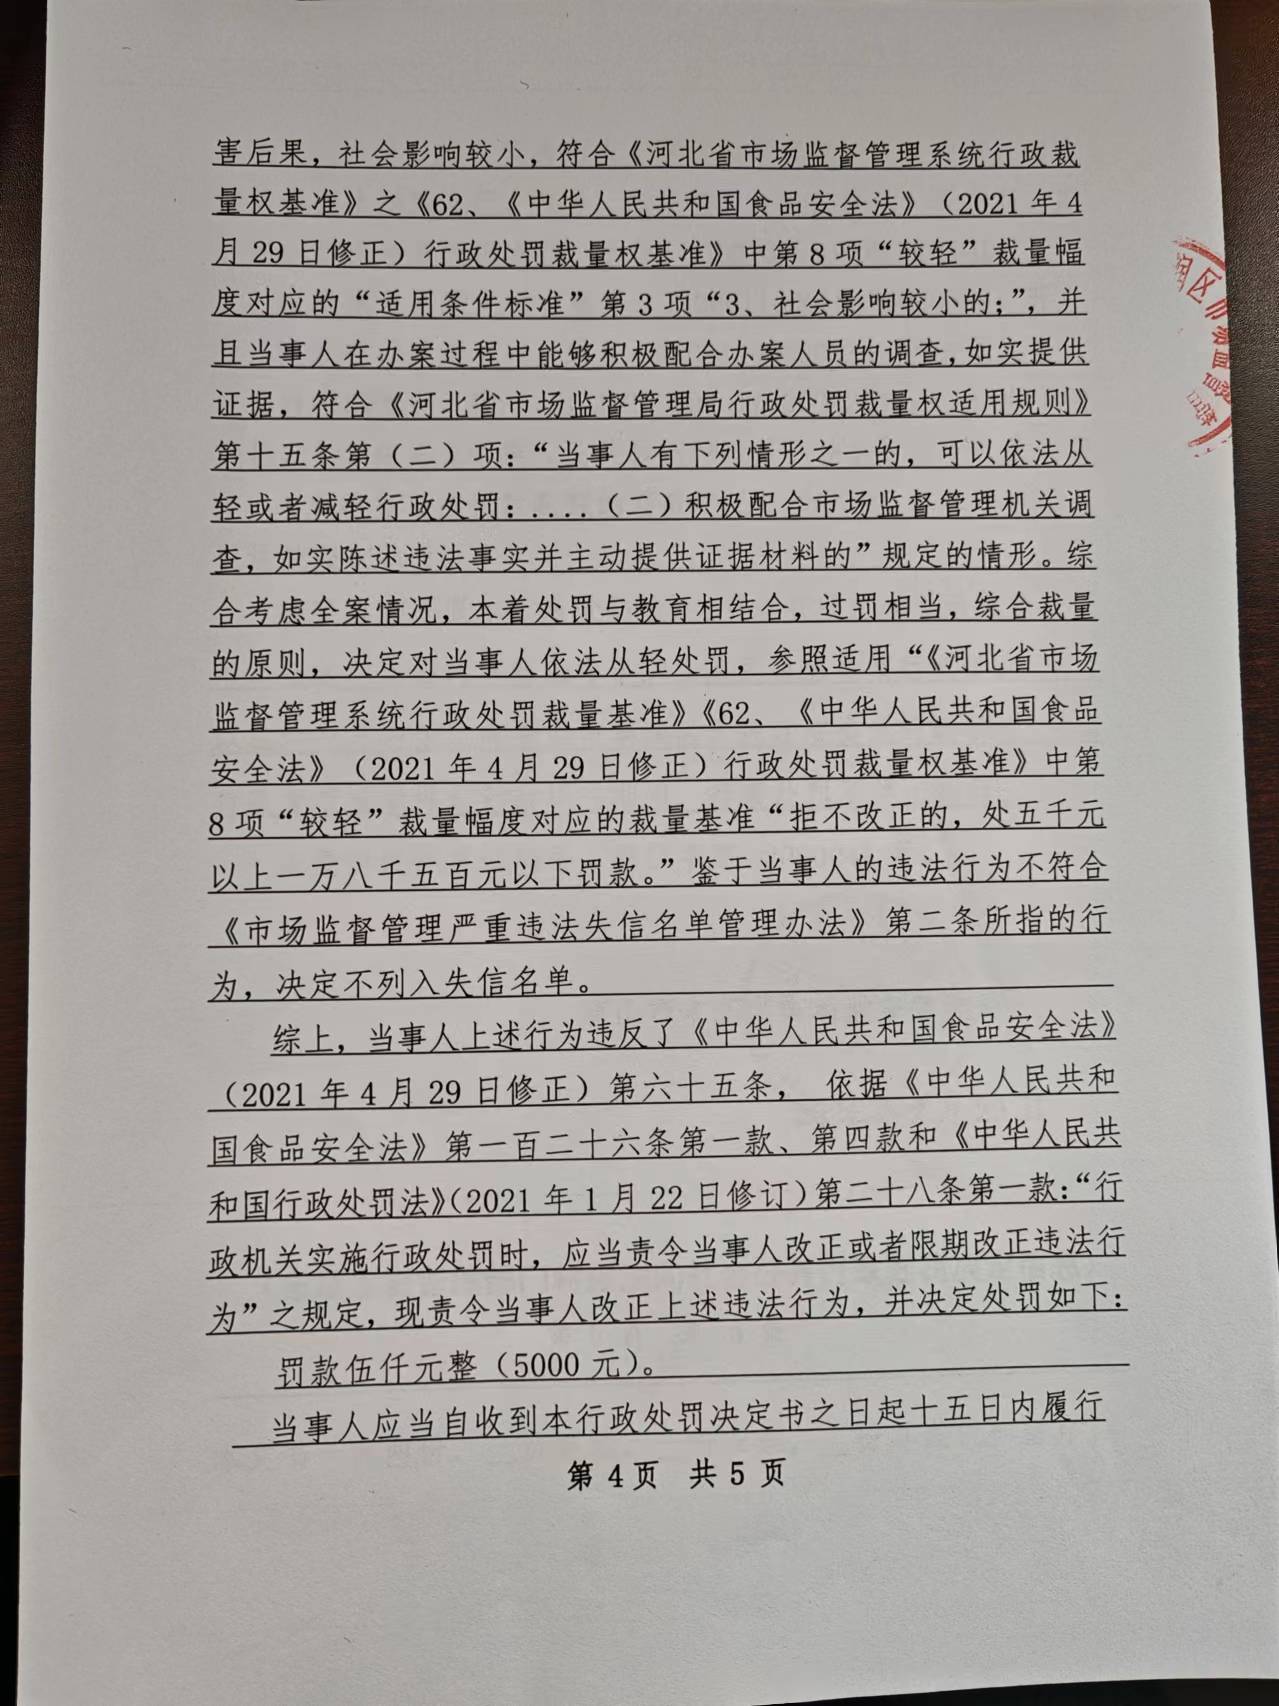 害后果，社会影响较小，符合《河北省市场监督管理系统行政裁
量权基准》之《62、《中华人民共和国食品安全法》（2021 年 4
月 29 日修正）行政处罚裁量权基准》中第 8 项“较轻”裁量幅
度对应的“适用条件标准”第 3 项“3、社会影响较小的；”，并
且当事人在办案过程中能够积极配合办案人员的调查，如实提供
证据，符合《河北省市场监督管理局行政处罚裁量权适用规则》
第十五条第（二）项：“当事人有下列情形之一的，可以依法从
轻或者减轻行政处罚：....（二）积极配合市场监督管理机关调
查，如实陈述违法事实并主动提供证据材料的”规定的情形。综
合考虑全案情况，本着处罚与教育相结合，过罚相当，综合裁量
的原则，决定对当事人依法从轻处罚，参照适用“《河北省市场
监督管理系统行政处罚裁量基准》《62、《中华人民共和国食品
安全法》（2021 年 4 月 29 日修正）行政处罚裁量权基准》中第
8 项“较轻”裁量幅度对应的裁量基准“拒不改正的，处五千元
以上一万八千五百元以下罚款。”鉴于当事人的违法行为不符合
《市场监督管理严重违法失信名单管理办法》第二条所指的行
为，决定不列入失信名单。
综上，当事人上述行为违反了《中华人民共和国食品安全法》
（2021 年 4 月 29 日修正）第六十五条， 依据《中华人民共和
国食品安全法》第一百二十六条第一款、第四款和《中华人民共
和国行政处罚法》（2021 年 1 月 22 日修订）第二十八条第一款：“行
政机关实施行政处罚时，应当责令当事人改正或者限期改正违法行
为”之规定，现责令当事人改正上述违法行为，并决定处罚如下：
罚款伍仟元整（5000 元）。
当事人应当自收到本行政处罚决定书之日起十五日内履行
第 4页 共 5 页